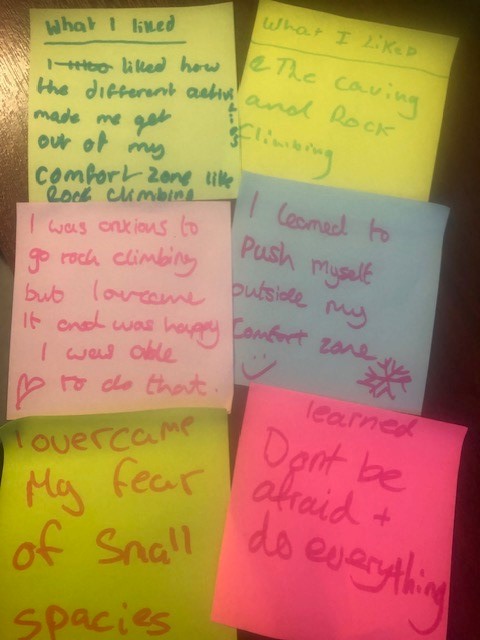 What I liked
I liked how
the different activities
made me get
out of my
comfort zone like
Rock climbing
What I liked
The caving
and Rock
Climbing
I was anxious to
go rock climbing
but I overcame
It and was happy
I was able
to do that.
I learned to
Push myself
outside my
comfort zone
I overcame
My fear
of Small
spacies
learned
Dont be
afraid +
do everything